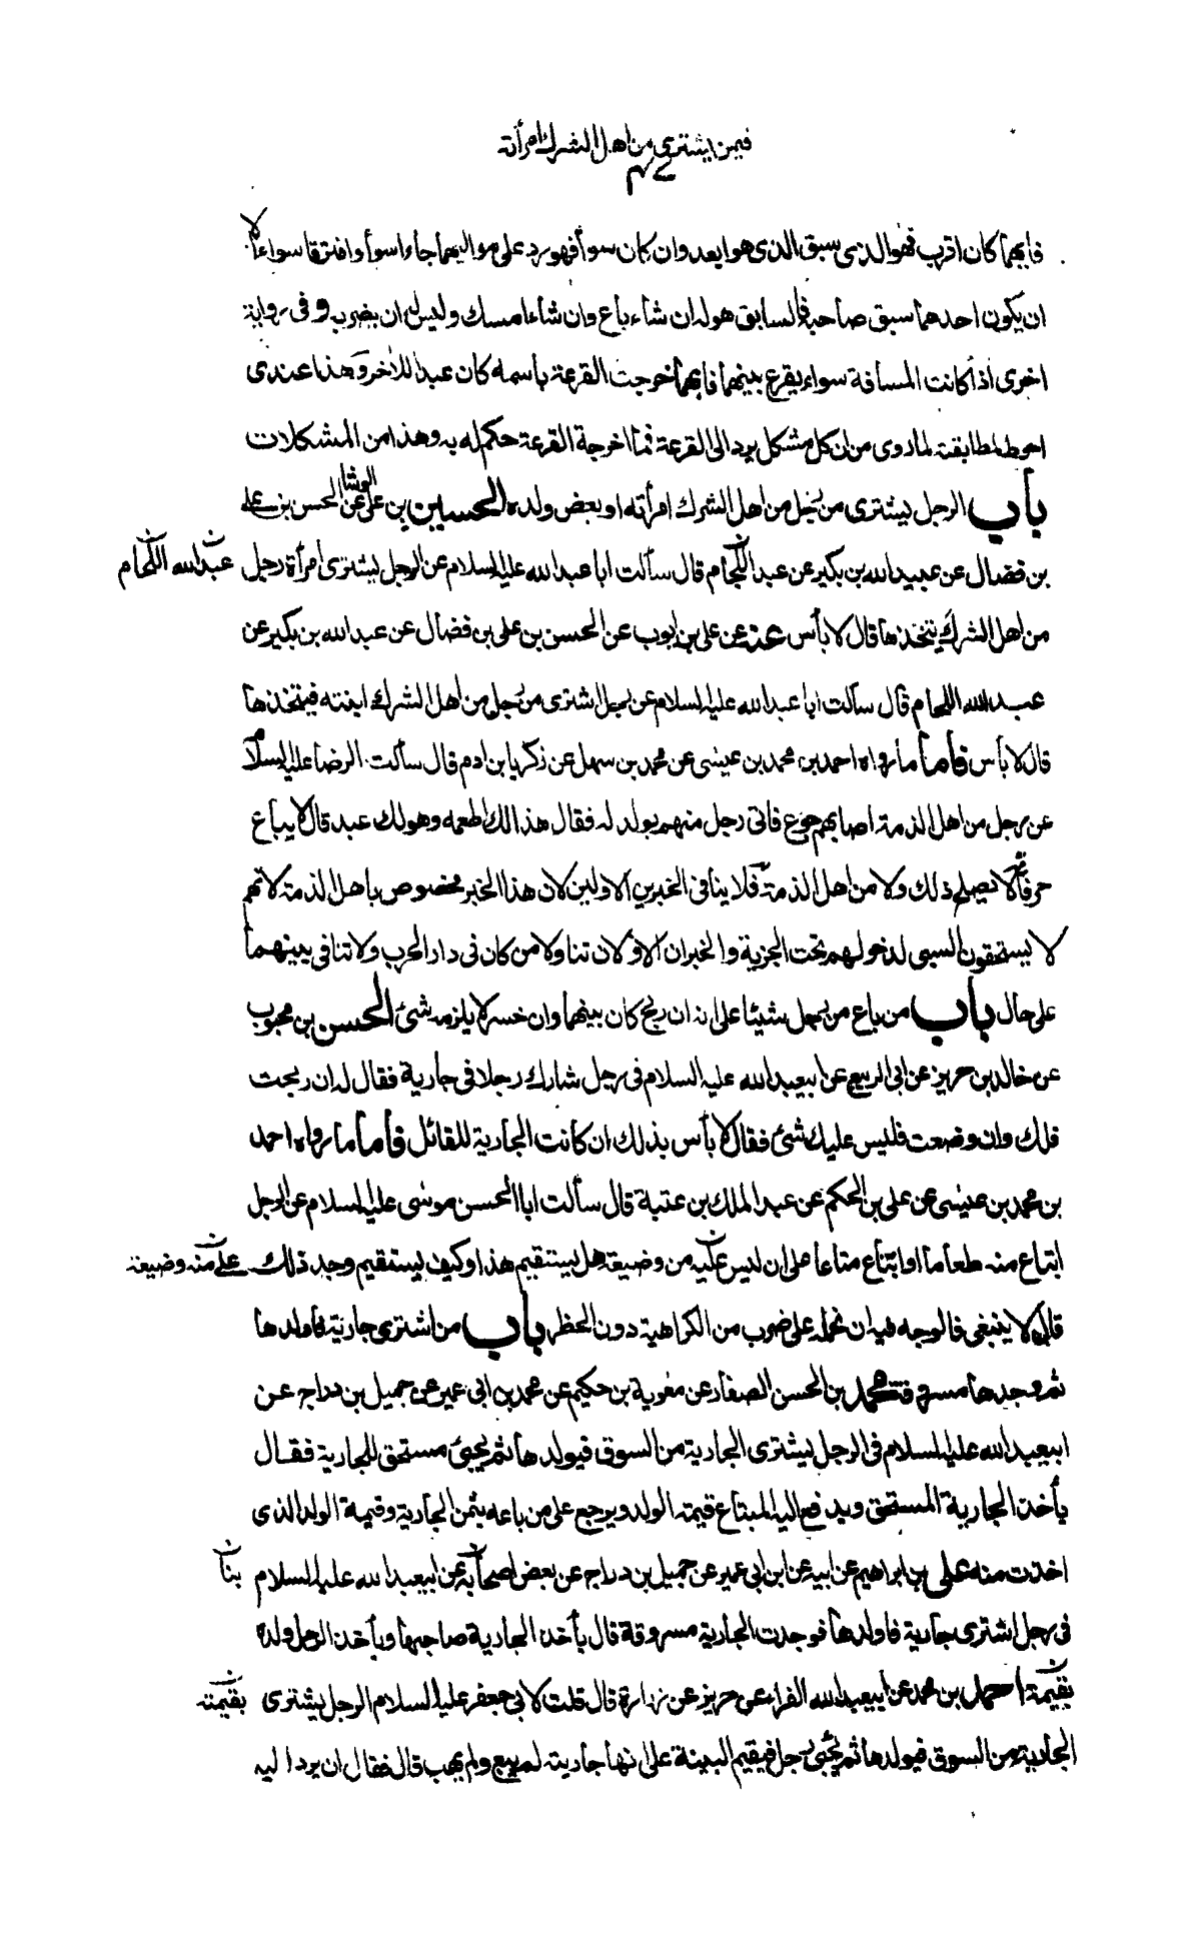 فيمن يشترى من اهل الشرك امرأته
فايهما كان اقرب فهو الذى سبق الذى هو ابعد وان كان سوأ فهو رد على مواليهما جاءا سوأ وافترقا سواء الا
ان يكون احدهما سبق صاحبه فالسابق هو له ان شاء باع وان شاء امسك وليس له ان يضرب وفى رواية
اخرى اذا كانت المسافة سواء يقرع بينهما فايهما خرجت القرعة باسمه كان عبدا للاخر وهذا عندى
احوط لمطابقته لما روى من ان كل مشكل يرد الى القرعة فما اخرجة القرعة حكم له به وهذا من المشكلات
باب الرجل يشترى من رجل من اهل الشرك امرأته او بعض ولده الحسين بن على الوشا عن الحسن بن على
بن فضال عن عبيد الله بن بكير عن عبد الله اللحام قال سألت ابا عبد الله عليه السلام عن الرجل يشترى امرأة رجل
عبد الله اللحام
من اهل الشرك يتخذها قال لا بأس عنه عن على بن ايوب عن الحسن بن على بن فضال عن عبد الله بن بكير عن
عبد الله اللحام قال سألت ابا عبد الله عليه السلام عن رجل اشترى من رجل من اهل الشرك ابنته فيتخذها
قال لا بأس فاما ما رواه احمد بن محمد بن عيسى عن محمد بن سهل عن زكريا بن ادم قال سألت الرضا عليه السلام
عن رجل من اهل الذمة اصابهم جوع فاتى رجل منهم بولد له فقال هذا لك اطعمه وهو لك عبد قال لا يباع
حر فانه لا يصلح ذلك ولا من اهل الذمة فلا ينافى الخبرين الاولين لان هذا الخبر مخصوص باهل الذمة لانهم
لا يستحقون السبى لدخولهم تحت الجزية والخبران الاولان تناولا من كان فى دار الحرب ولا تنافى بينهما
على حال باب من باع من رجل شيئا على انه ان ربح كان بينهما وان خسر لا يلزمه شئ الحسن بن محبوب
عن خالد بن حريز عن ابى الربيع عن ابيعبد الله عليه السلام فى رجل شارك رجلا فى جارية فقال له ان ربحت
فلك وان وضعت فليس عليك شئ فقال لا بأس بذلك ان كانت الجارية للقائل فاما ما رواه احمد
بن محمد بن عيسى عن على بن الحكم عن عبد الملك بن عتبة قال سألت ابا الحسن موسى عليه السلام عن الرجل
ابتاع منه طعاما او ابتاع متاعا على ان ليس عليه من وضيعة هل يستقيم هذا وكيف يستقيم وجد ذلك
على منه وضيعة
قال لا ينبغى فالوجه فيه ان نحمله على ضرب من الكراهية دون الحظر باب من اشترى جارية فاولدها
ثم وجدها مسروقة محمد بن الحسن الصفار عن معوية بن حكيم عن محمد بن ابى عمير عن جميل بن دراج عن
ابيعبد الله عليه السلام فى الرجل يشترى الجارية من السوق فيولدها ثم يجئ مستحق للجارية فقال
يأخذ الجارية المستحق ويدفع اليه المبتاع قيمة الولد ويرجع على من باعه بثمن الجارية وقيمة الولد الذى
اخذت منه على بن ابراهيم عن ابيه عن ابن ابى عمير عن جميل بن دراج عن بعض اصحابه عن ابيعبد الله عليه السلام
بنا
فى رجل اشترى جارية فاولدها فوجدت الجارية مسروقة قال يأخذ الجارية صاحبها ويأخذ الرجل ولده
بقيمة احمد بن محمد عن ابيعبد الله الفراء عن حريز عن زرارة قال قلت لابى جعفر عليه السلام الرجل يشترى
بقيمته
الجارية من السوق فيولدها ثم يجئ رجل فيقيم البينة على انها جاريته لم يبع ولم يهب قال فقال ان يرد اليه